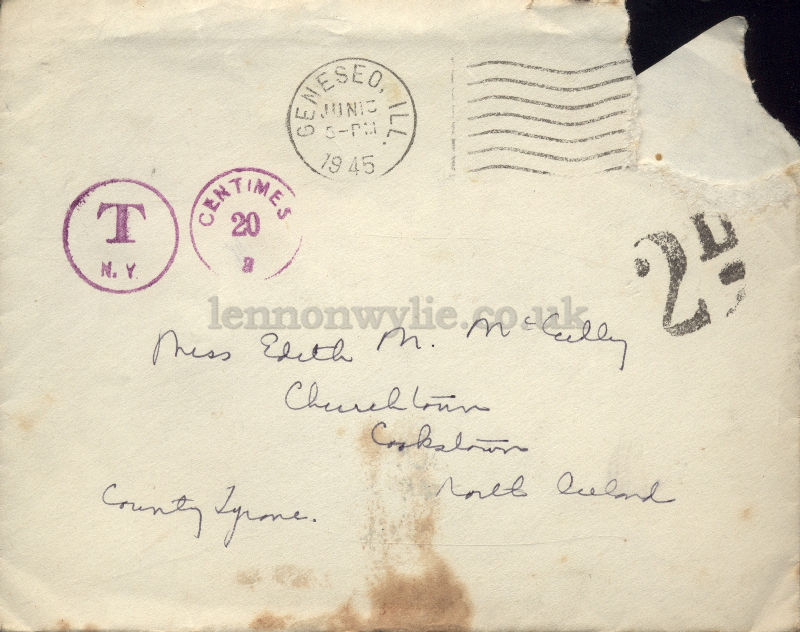 GENESEO, ILL.
JUN 15
5-PM
1945
T
N. Y.
CENTIMES
20
2D
lennonwylie.co.uk
Miss Edith M.
Churchtown
Cookstown
North Ireland
County Tyrone.